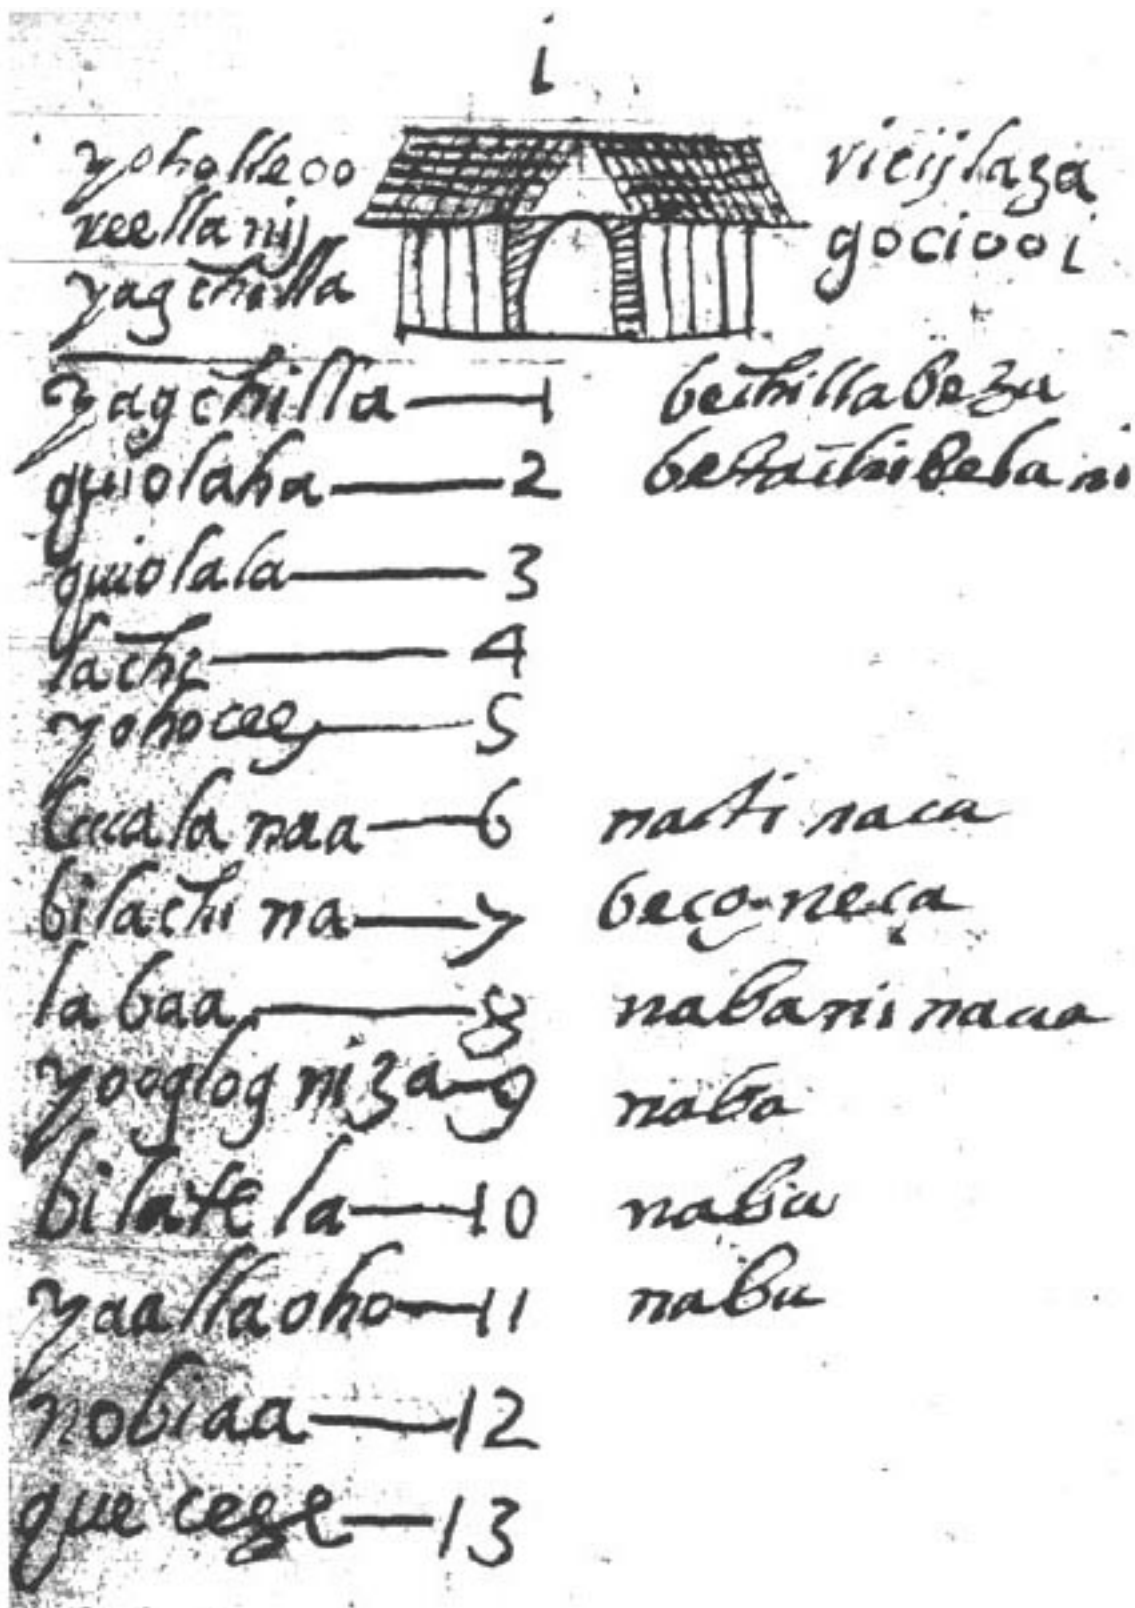 i
yoholleoo
reella nij
yagchilla
vicijlaza
gocioo i
yagchilla 1 bechillabeza
quiolaha 2
quiolala 3
lachi 4
yohoceg 5
lala naa 6 nati naca
bilachi na 7 beço neça
la baa 8 nabanis nacaa
yooglog niza 9 naba
bilatela 10 naba
yaallaoho 11 naba
nobiaa 12
que cege 13